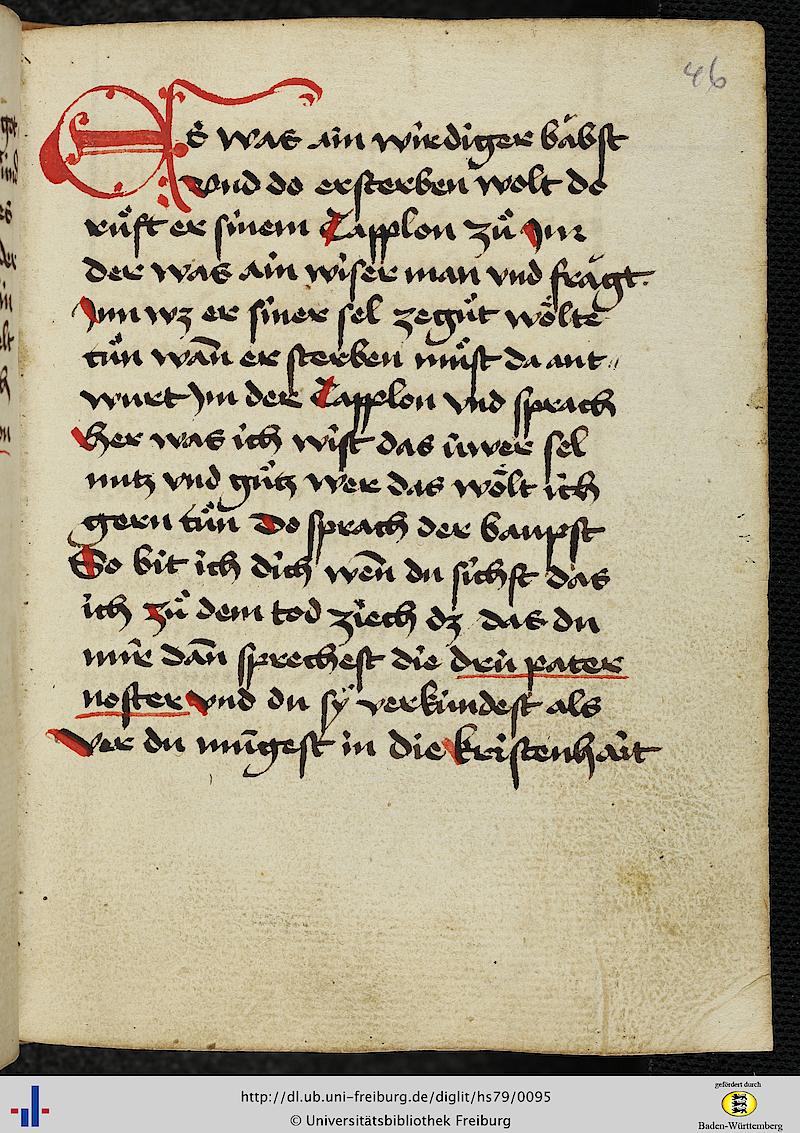 46
Es was ain wirdiger bäbst
vnd do ersterben wolt do
růft er sinem Capplon zů Im
der was ain wiser man vnd frägt
Imm wz er siner sel zegůt wölte
tůn wañ er sterben můst da ant⸗
wurt Im der Capplon vnd sprach
Her was ich wist das ůwer sel
nutz vnd gůtz wer das wölt ich
gern tůn Do sprach der baupst
So bit ich dich weñ du sichst das
ich zů dem tod ziech dz das du
mir dañ sprechest die drü pater
noster vnd du sÿ verkündest als
ver du mügest in die kristenhait
http://dl.ub.uni-freiburg.de/diglit/hs79/0095
© Universitätsbibliothek Freiburg
gefördert durch
Baden-Württemberg